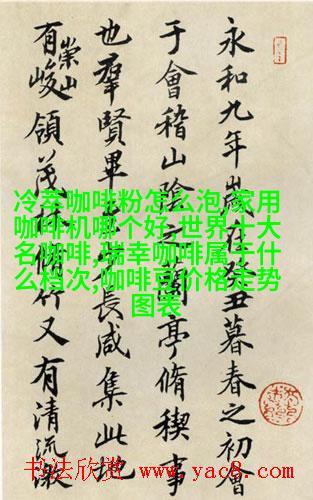 永和九年歲在癸丑暮春之初會
于會稽山陰之蘭亭脩稧事
也羣賢畢至少長咸集此地
有崇山峻領茂林脩竹又有清流激
冷萃咖啡粉怎么泡,家用
咖啡机哪个好,世界十大
名咖啡,瑞幸咖啡属于什
么档次,咖啡豆价格走势
图表
书法欣赏 www.yac8.com